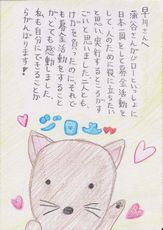 早川さんへ
蒲谷さんがジローといっしょに
日本一周をして募金活動を
して人のために役に立ちたい
と思い実行するところがす
ごいと思いました。二人とも、
けがを負ったのに、それで
も募金活動をすることが
とても感動しました。
私も自分にできることか
らがんばります!
ジロー